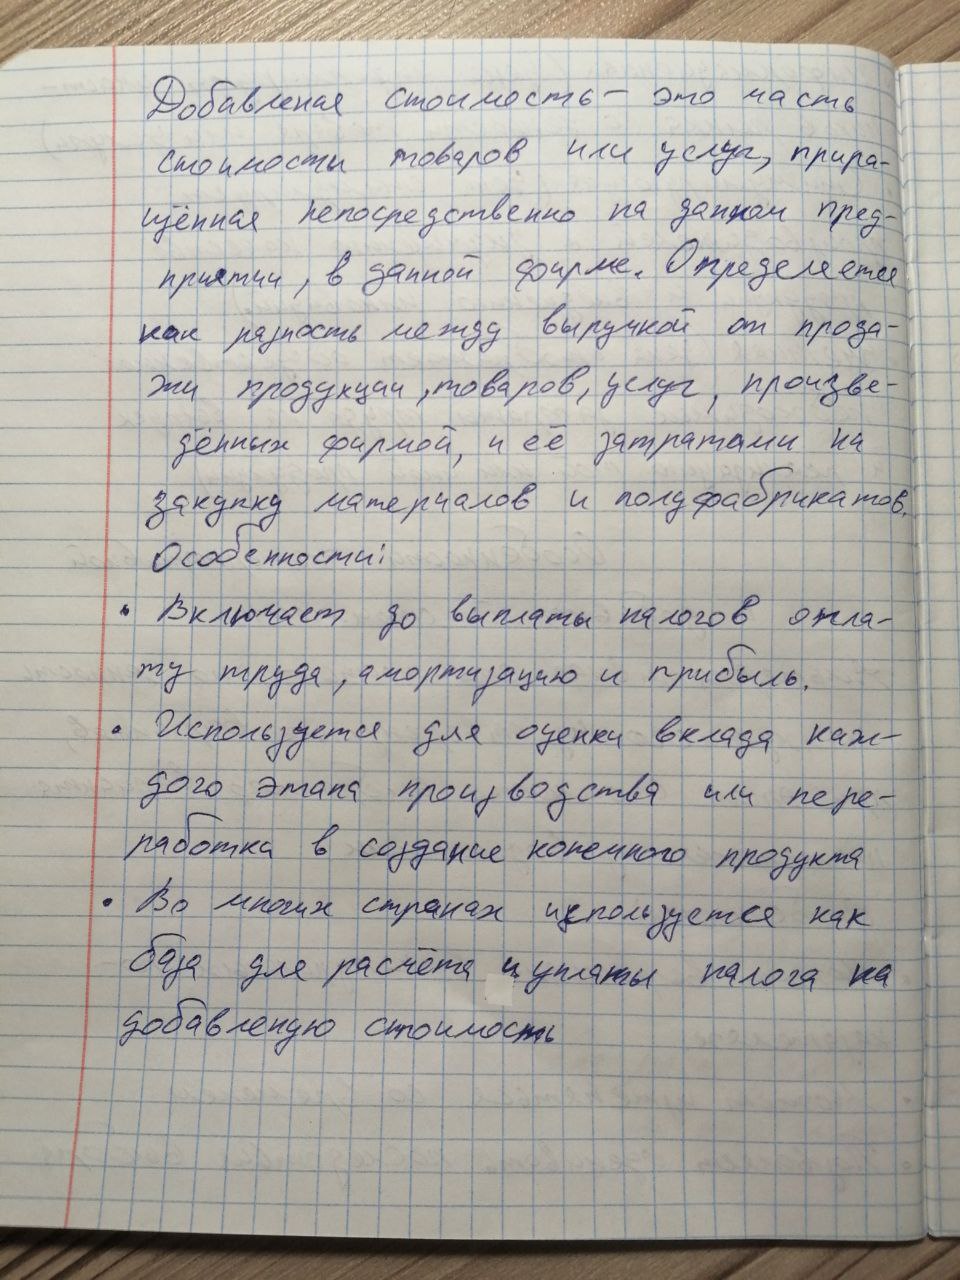 Добавленая стоимость – это часть
стоимости товаров или услуг, прира-
щённая непосредственно на данном пред-
приятии, в данной фирме. Определяется
как разность между выручкой от прода-
жи продукции, товаров, услуг, произве-
дённых фирмой, и её затратами на
закупку материалов и полуфабрикатов.
Особенности:
• Включает до выплаты налогов опла-
ту труда, амортизацию и прибыль.
• Используется для оценки вклада каж-
дого этапа производства или пере-
работка в создание конечного продукта
• Во многих странах используется как
база для расчёта и уплаты налога на
добавленую стоимость